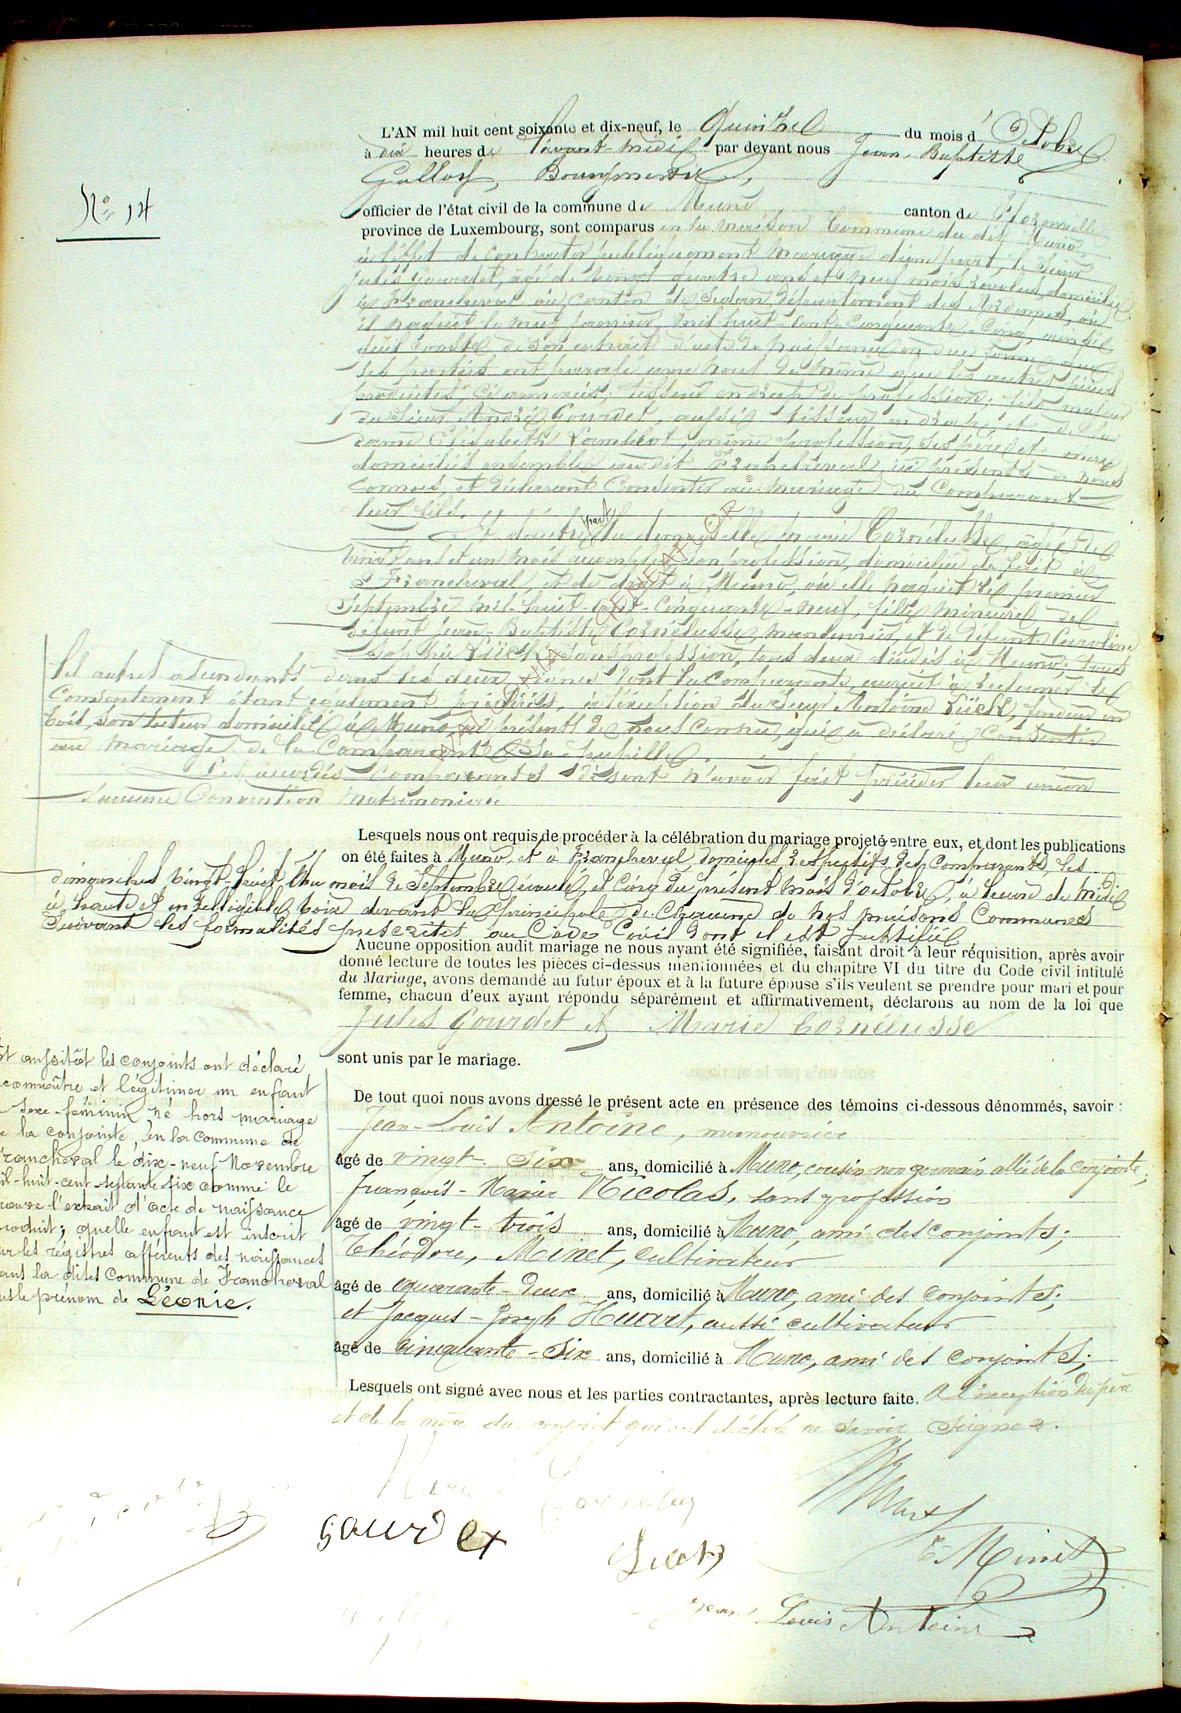 N° 14
L'AN mil huit cent soixante et dix-neuf, le Quinze du mois d'Octobre
à dix heures de l'avant-midi par devant nous Jean-Baptiste
Bourgmestre,
officier de l'état civil de la commune de Muno canton de Florenville
province de Luxembourg, sont comparus en la maison Commune du dit Muno
à l'effet de contracter publiquement mariage d'une part, le Sieur
Jules Gourdet, âgé de vingt quatre ans et neuf mois révolus, domicilié
à Francheval au Canton de Sedan, département des Ardennes, où
il naquit le neuf janvier mil huit cent cinquante-cinq, ainsi
constté de son extrait d'acte de naissance en due forme que
les parties ont produit de même que les autres pièces
tisseur en draps de profession, fils
du Sieur André Gourdet, aussi tisseur en draps et de la
dame Elisabeth Lambert, même profession, ses père et mère
domiciliés ensemble au dit Francheval, ici présents à nous
connus et déclarant Consentir au mariage du Comparant
leur fils.
Et d'autre part la demoiselle Marie Cornélusse, âgée de
vingt ans et un mois sans profession, domiciliée de fait à
Francheval, et de droit à Muno, où elle naquit le premier
Septembre mil-huit-cent-cinquante-neuf, fille mineure de
défunt Jean-Baptiste Cornélusse, manouvrier, et de défunte Caroline
sans profession, tous deux décédés à Muno, tous
les autres ascendants dans les deux lignes dont la Comparante aurait à réclamer le
Consentement étant également à l'exception du Sieur Antoine
son tuteur domicilié à Muno, ici présent de nous connu, qui a déclaré Consentir
au mariage de la Comparante Sa pupille.
comparants disent n'avoir fait précéder leur union
d'aucune Convention matrimoniale
Lesquels nous ont requis de procéder à la célébration du mariage projeté entre eux, et dont les publications
on été faites à Muno, et à Francheval, domiciles respectifs des Comparants, les
dimanches vingt-huit du mois de Septembre écoulé, et Cinq du présent mois d'octobre, à heure de midi
à haute et intelligible voix devant la principale de Chacune de nos maisons Communes
Suivant les formalités prescrites au Code Civil dont il est justifié
Aucune opposition audit mariage ne nous ayant été signifiée, faisant droit à leur réquisition, après avoir
donné lecture de toutes les pièces ci-dessus mentionnées et du chapitre VI du titre du Code civil intitulé
du Mariage, avons demandé au futur époux et à la future épouse s'ils veulent se prendre pour mari et pour
femme, chacun d'eux ayant répondu séparément et affirmativement, déclarons au nom de la loi que
Jules Gourdet et Marie Cornélusse
sont unis par le mariage.
Et aussitôt les conjoints ont déclaré
connaître et légitimer un enfant
sexe féminin né hors mariage
de la conjointe, en la Commune de
Francheval le dix-neuf Novembre
mil-huit-cent-septante-six comme le
prouve l'extrait d'acte de naissance
produit; quelle enfant est inscrit
sur les régistres afférents des naissances
dans la dites Commune de Francheval
sous le prénom de Léonie.
De tout quoi nous avons dressé le présent acte en présence des témoins ci-dessous dénommés, savoir :
Jean-Louis Antoine, manouvrier
âgé de vingt-six ans, domicilié à Muno, cousin non germain allié de la conjointe;
François-Xavier Nicolas, sans profession
âgé de vingt-trois ans, domicilié à Muno, ami des conjoints;
Théodore, Minet, cultivateur
âgé de quarante-deux ans, domicilié à Muno, ami des conjoints;
et Jacques-Joseph Huart, aussi cultivateur
âgé de cinquante-six ans, domicilié à Muno, ami des conjoints;
Lesquels ont signé avec nous et les parties contractantes, après lecture faite. A l'exception du père
et de la mère du conjoint qui ont déclaré ne savoir Signer.
Marie Cornélus
gourdet
Huart
T Minet
Jean Louis Antoine